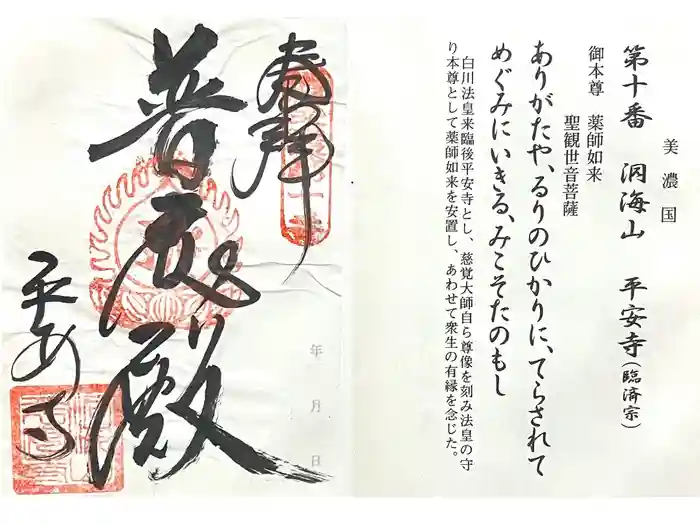 美濃国
第十番 洞海山 平安寺(臨済宗)
御本尊 薬師如来
聖観世音菩薩
ありがたや、るりのひかりに、てらされて
めぐみにいきる、みこそたのもし
白川法皇来臨後平安寺とし、慈覚大師自ら尊像を刻み法皇の守
り本尊として薬師如来を安置し、あわせて衆生の有縁を念じた。
奉拝
年 月 日
普應殿
平安寺